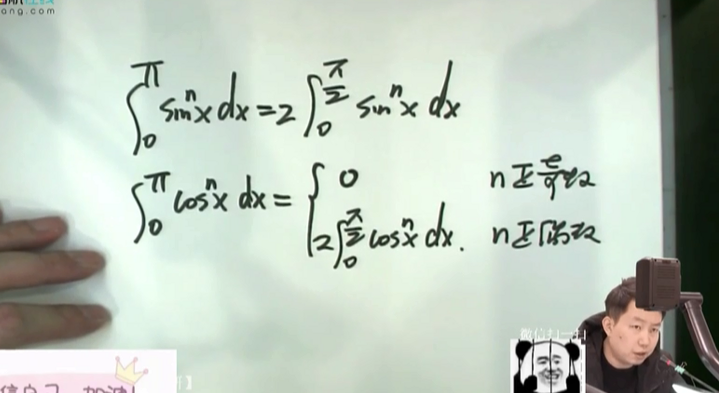 ong.com
∫₀^π sinⁿx dx = 2∫₀^(π/2) sinⁿx dx
∫₀^π cosⁿx dx = { 0 n正奇数
2∫₀^(π/2) cosⁿx dx. n正偶数
微信扫一扫